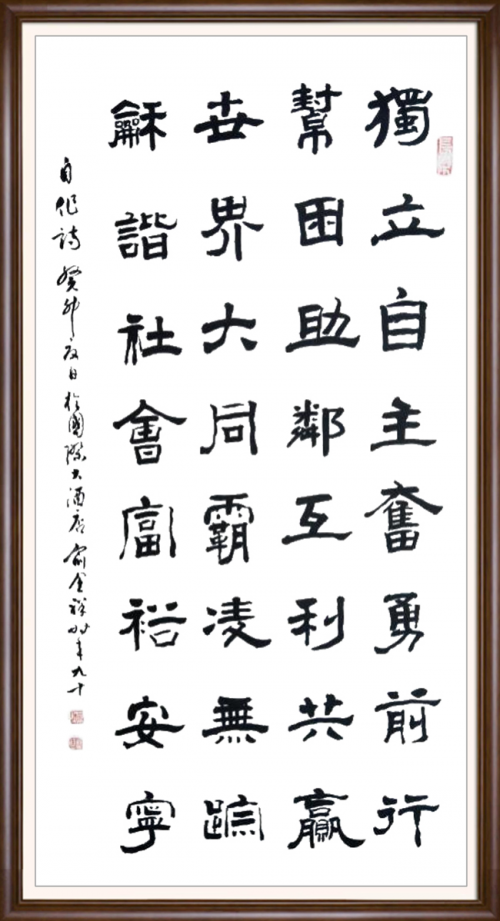 獨立自主奮勇前行
幫困助鄰互利共贏
世界大同霸凌無踪
龢諧社會富裕安寧
自作詩 癸卯夏日於國際大酒店 俞金祥時年九十